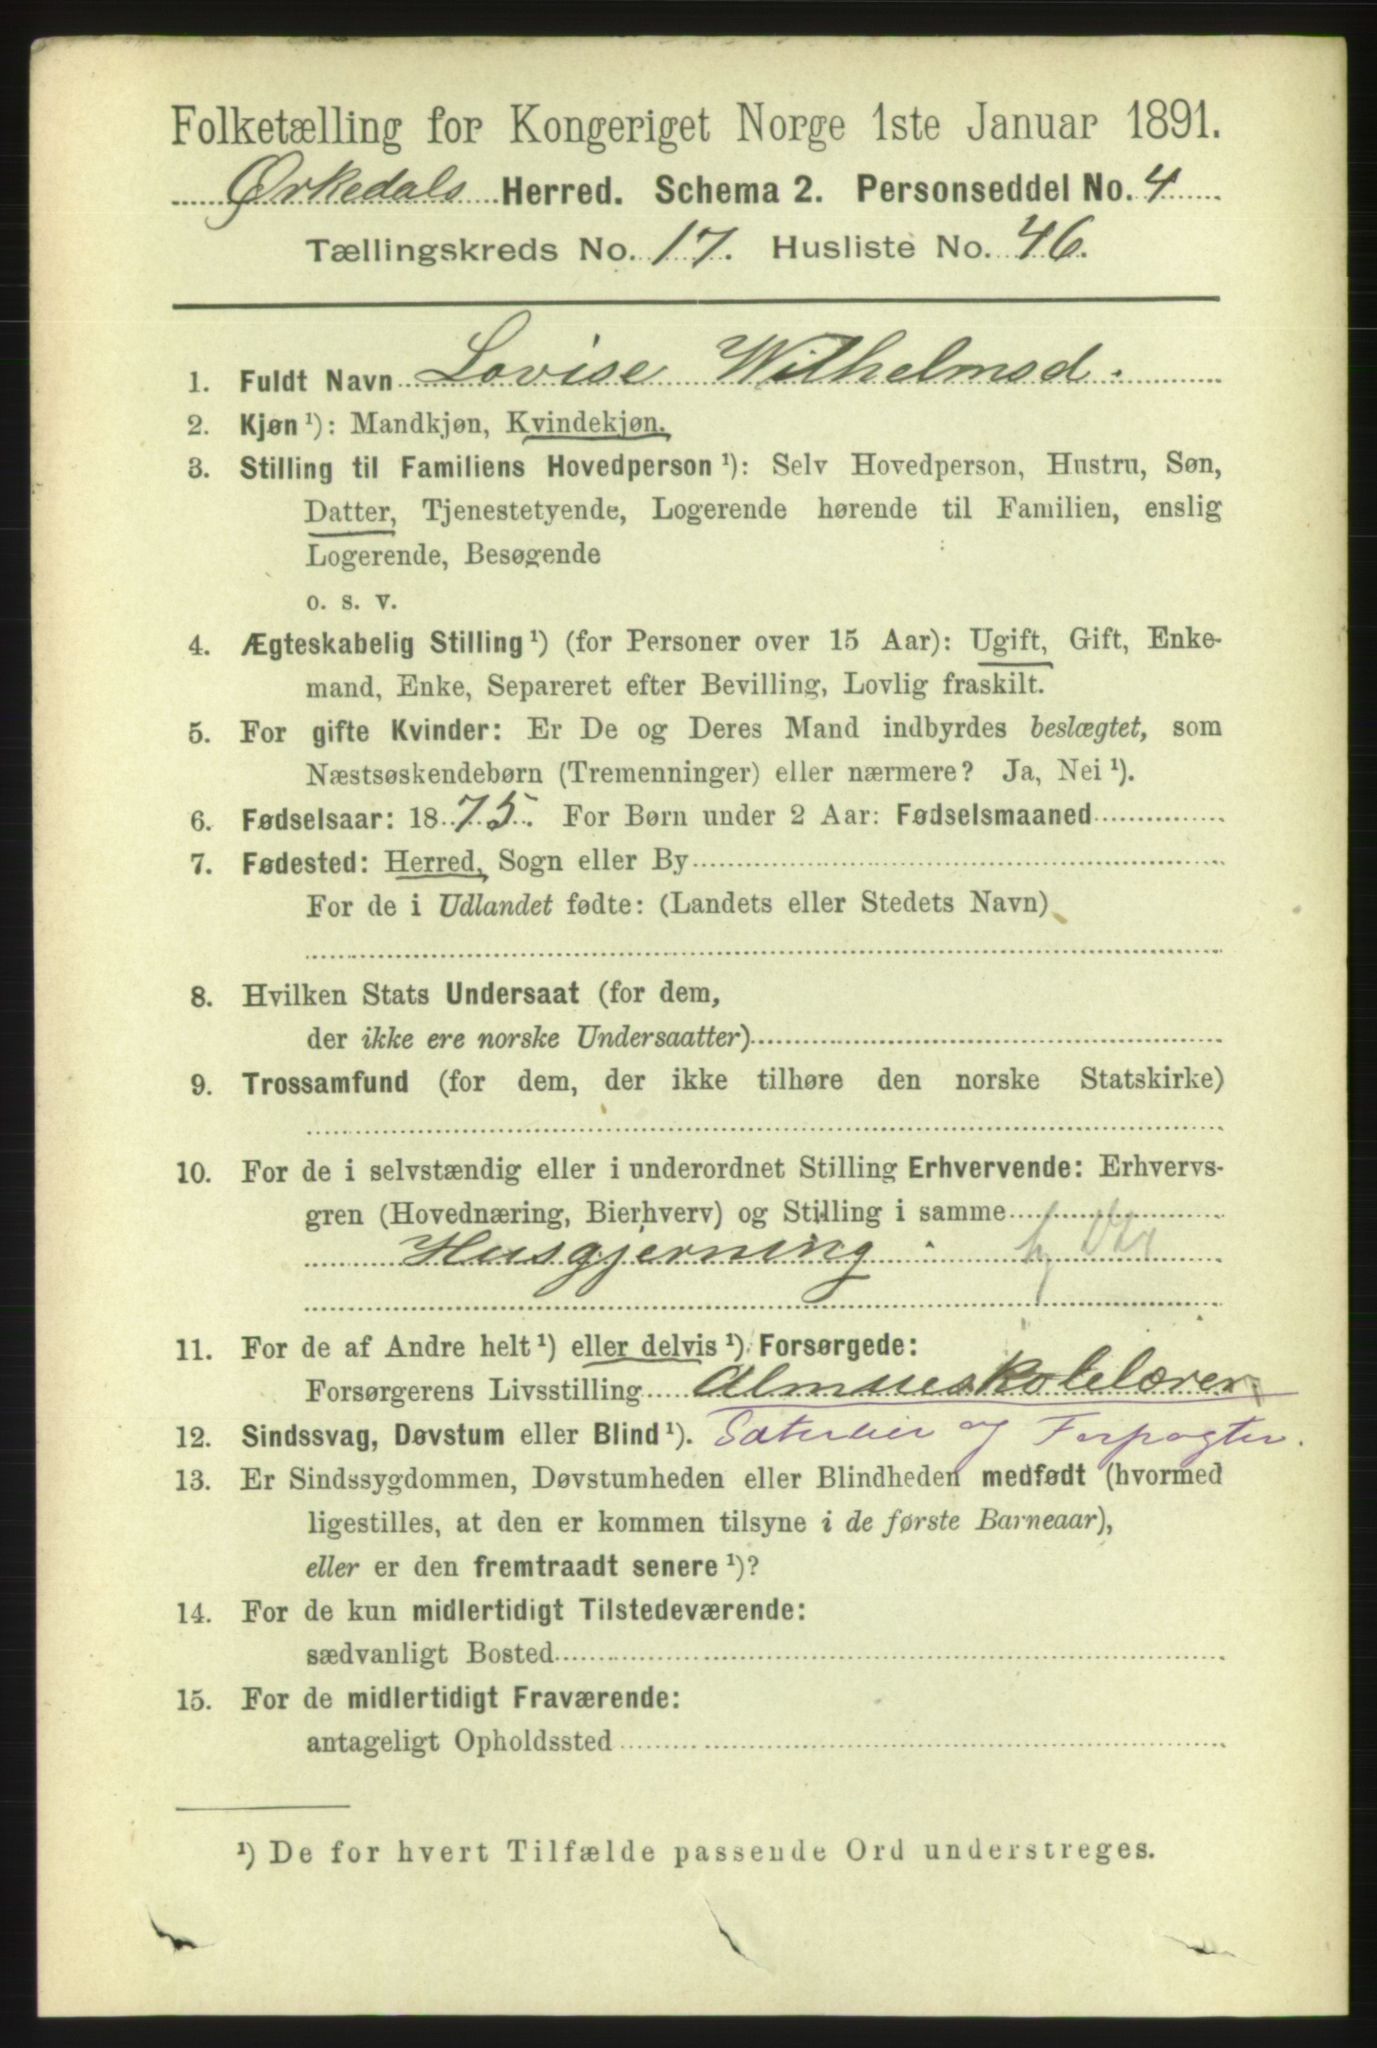 Folketælling for Kongeriget Norge 1ste Januar 1891.
Ørkedals Herred. Schema 2. Personseddel No. 4
Tællingskreds No. 17. Husliste No. 46.
1. Fuldt Navn Lovise Wilhelmsd.
2. Kjøn ¹): Mandkjøn, Kvindekjøn.
3. Stilling til Familiens Hovedperson ¹): Selv Hovedperson, Hustru, Søn,
Datter, Tjenestetyende, Logerende hørende til Familien, enslig
Logerende, Besøgende
o. s. v.
4. Ægteskabelig Stilling ¹) (for Personer over 15 Aar): Ugift, Gift, Enke-
mand, Enke, Separeret efter Bevilling, Lovlig fraskilt.
5. For gifte Kvinder: Er De og Deres Mand indbyrdes beslægtet, som
Næstsøskendebørn (Tremenninger) eller nærmere? Ja, Nei ¹).
6. Fødselsaar: 1875. For Børn under 2 Aar: Fødselsmaaned
7. Fødested: Herred, Sogn eller By
For de i Udlandet fødte: (Landets eller Stedets Navn)
8. Hvilken Stats Undersaat (for dem,
der ikke ere norske Undersaatter)
9. Trossamfund (for dem, der ikke tilhøre den norske Statskirke)
10. For de i selvstændig eller i underordnet Stilling Erhvervende: Erhvervs-
gren (Hovednæring, Bierhverv) og Stilling i samme
Husgjerning
11. For de af Andre helt ¹) eller delvis ¹) Forsørgede:
Forsørgerens Livsstilling Almueskolelærer
12. Sindssvag, Døvstum eller Blind ¹). og Forpagter.
13. Er Sindssygdommen, Døvstumheden eller Blindheden medfødt (hvormed
ligestilles, at den er kommen tilsyne i de første Barneaar),
eller er den fremtraadt senere ¹)?
14. For de kun midlertidigt Tilstedeværende:
sædvanligt Bosted
15. For de midlertidigt Fraværende:
antageligt Opholdssted
¹) De for hvert Tilfælde passende Ord understreges.